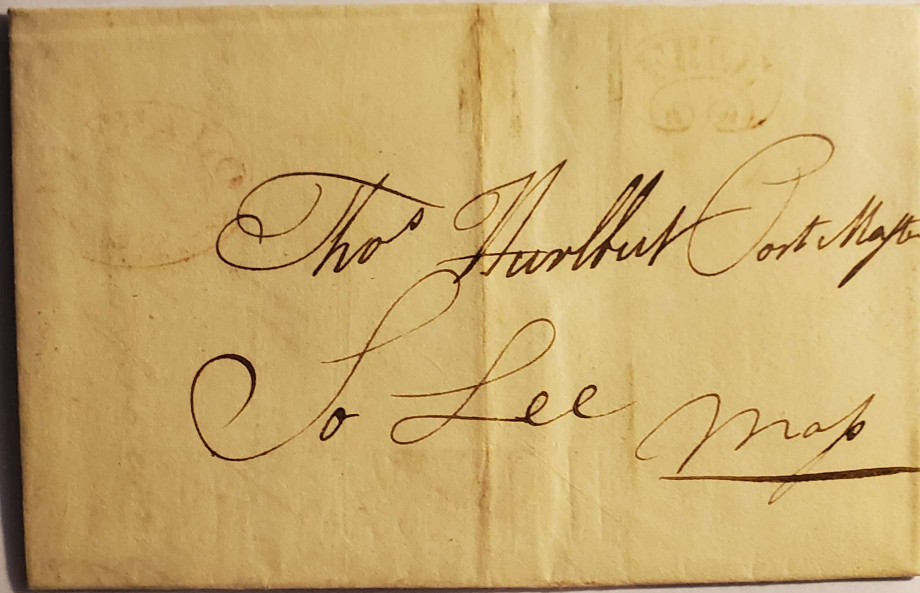 FREE
Thos Hurlbut Post Maste
So Lee Mass